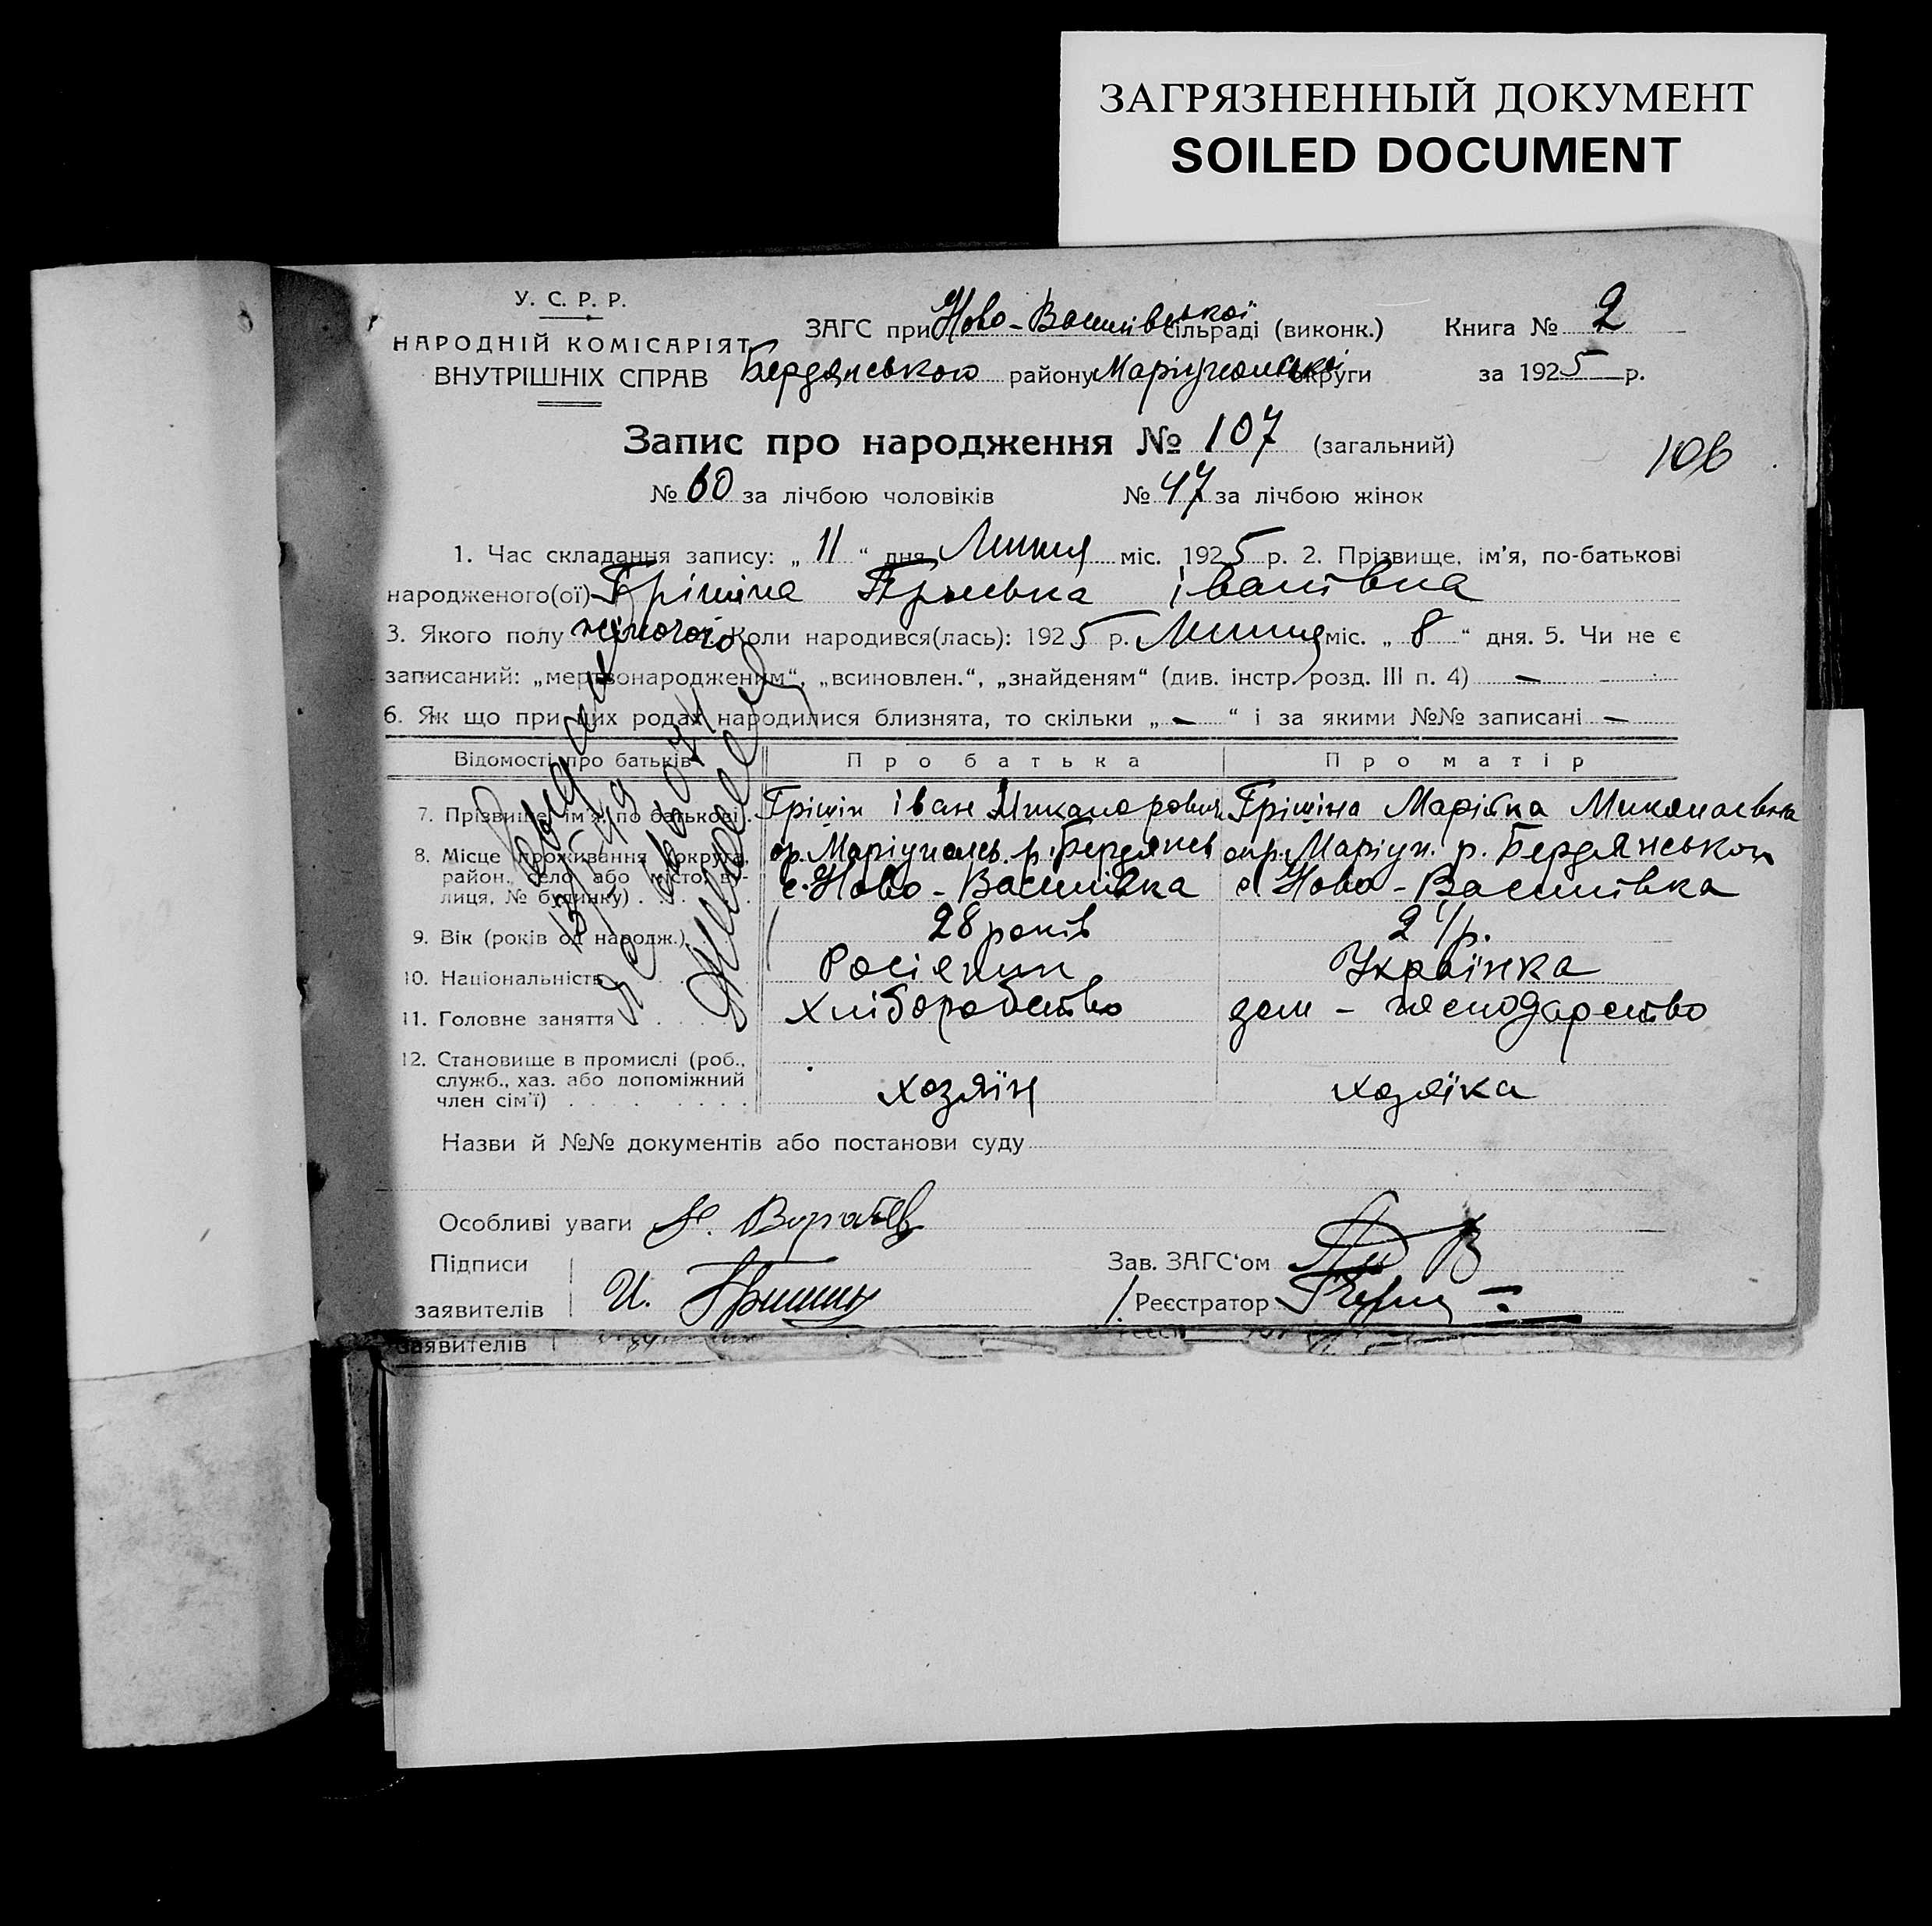 ЗАГРЯЗНЕННЫЙ ДОКУМЕНТ
SOILED DOCUMENT
У. С. Р. Р.
НАРОДНІЙ КОМІСАРІЯТ
ВНУТРІШНІХ СПРАВ
ЗАГС при Ново-Василівської сільраді (виконк.) Книга № 2
Бердянського району Маріупольської округи за 1925 р.
Запис про народження № 107 (загальний)
106
№ 60 за лічбою чоловіків № 47 за лічбою жінок
1. Час складання запису: „ 11 “ дня Липня міс. 1925 р. 2. Прізвище, ім'я, по-батькові
народженого(ої) Грішіна Іванівна
3. Якого полу жіночого Коли народився(лась): 1925 р. Липня міс. „ 8 “ дня. 5. Чи не є
записаний: „мертвонародженим“, „всиновлен.“, „знайденям“ (див. інстр. розд. III п. 4) —
6. Як що при цих родах народилися близнята, то скільки „ — “ і за якими №№ записані —
Відомості про батьків Про батька Про матір
7. Прізвище, ім'я, по батькові. Грішін Іван Никанорович Грішіна Марійка Миколаєвна
8. Місце проживання (округа, район, село або місто, вулиця, № будинку) ор. Маріупольс. р. Бердянсь окр. Маріуп. р. Бердянського
с. Ново-Василівка с. Ново-Василівка
9. Вік (років од народж.) 28 років
10. Національність Росіянин Українка
11. Головне заняття Хліборобство дом - господарство
12. Становище в промислі (роб.,
служб., хаз. або допоміжний
член сім'ї) хозяїн хозяїка
Назви й №№ документів або постанови суду
Особливі уваги
Підписи Зав. ЗАГС'ом
заявителів И. Гришин Реєстратор
заявителів